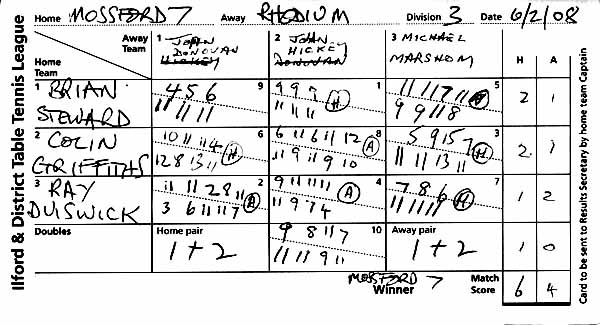 Ilford & District Table Tennis League
Home MOSSFORD 7 Away RHODIUM Division 3 Date 6/2/08
Away Team
Home Team
1 JOHN DONOVAN HICKEY
2 JOHN HICKEY DONOVAN
3 MICHAEL MARSHOM
H A
1 BRIAN STEWARD
4 5 6 9
11 11 11
9 9 9 1
11 11 11 H
11 11 7 11 5
9 9 11 8
2 1
2 COLIN GRIFFITHS
10 11 11 4 6
12 8 13 11 H
6 11 6 11 12 A 8
11 9 11 9 10
5 9 15 7 H 3
11 11 13 11
2 1
3 RAY DUISWICK
11 11 2 8 11 2
3 6 11 11 7 A
9 11 11 11 4
11 9 7 4 A
7 8 6 7
11 11 11 H
1 2
Doubles
Home pair
1 + 2
9 8 11 7 10
11 11 9 11
Away pair
1 + 2
1 0
MOSSFORD 7
Winner
Match Score
6 4
Card to be sent to Results Secretary by home team Captain